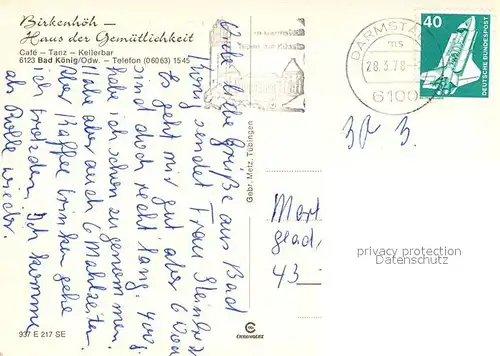 Birkenhöh —
Haus der Gemütlichkeit
Café – Tanz – Kellerbar
6123 Bad König/Odw. – Telefon (06063) 1545
DARMSTA
ms
28.3.78
6100
40
DEUTSCHE BUNDESPOST
Viele liebe Grüße aus Bad
König sendet Frau
Es geht mir gut aber 6 Woch
sind doch recht lang. 400 g
habe ich schon zugenommen.
Habe aber auch 6 Mahlzeiten.
Aber Kaffee trinken gehe
ich trotzdem. Ich komme
als Rolle wieder.
Gebr. Metz, Tübingen
937 E 217 SE
CHROMOLUX
43
privacy protection
Datenschutz